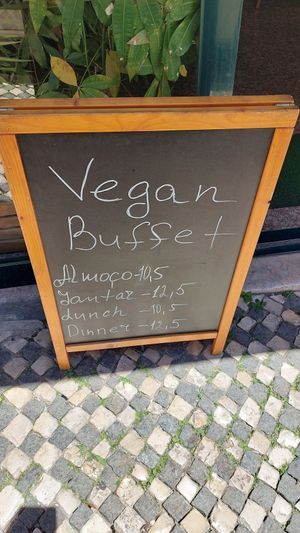 Vegan
Buffet
Almoço-10,5
Jantar -12,5
Lunch -10,5
Dinner -12,5